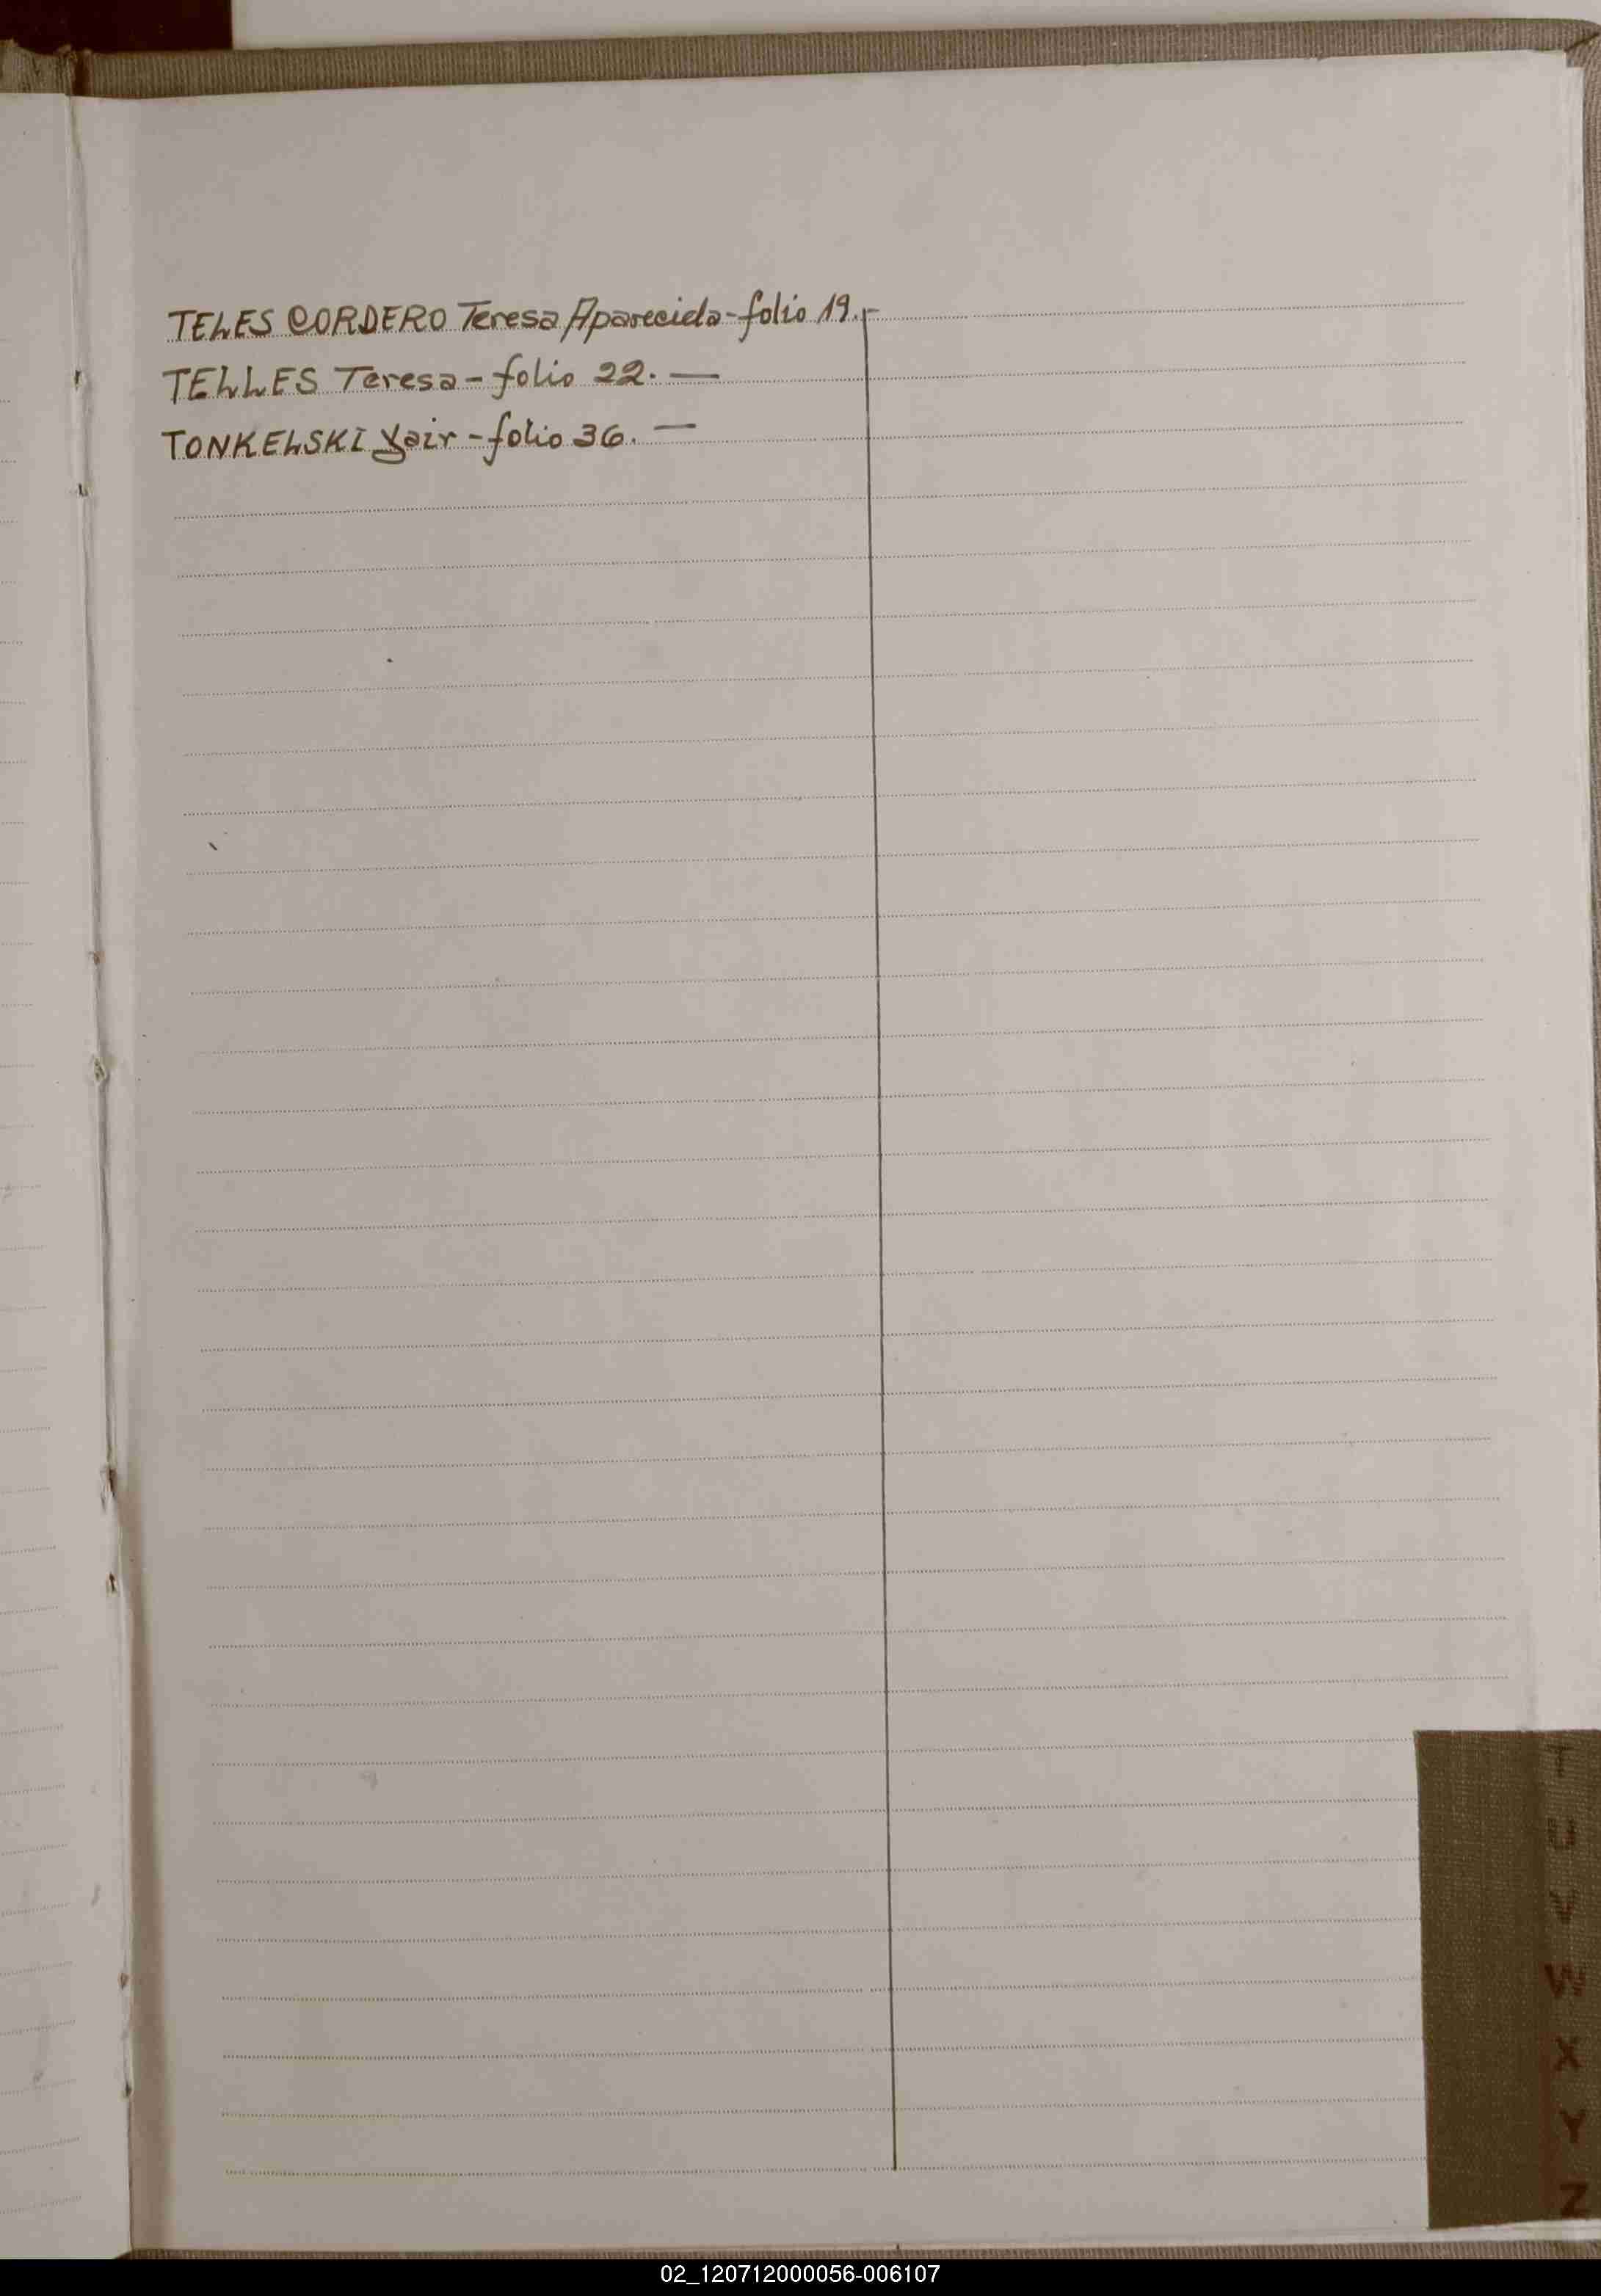 TELES CORDERO Teresa Aparecida - folio 19.-
TELLES Teresa - folio 22. —
TONKELSKI Yair - folio 36. —
T
U
V
W
X
Y
Z
02_120712000056-006107